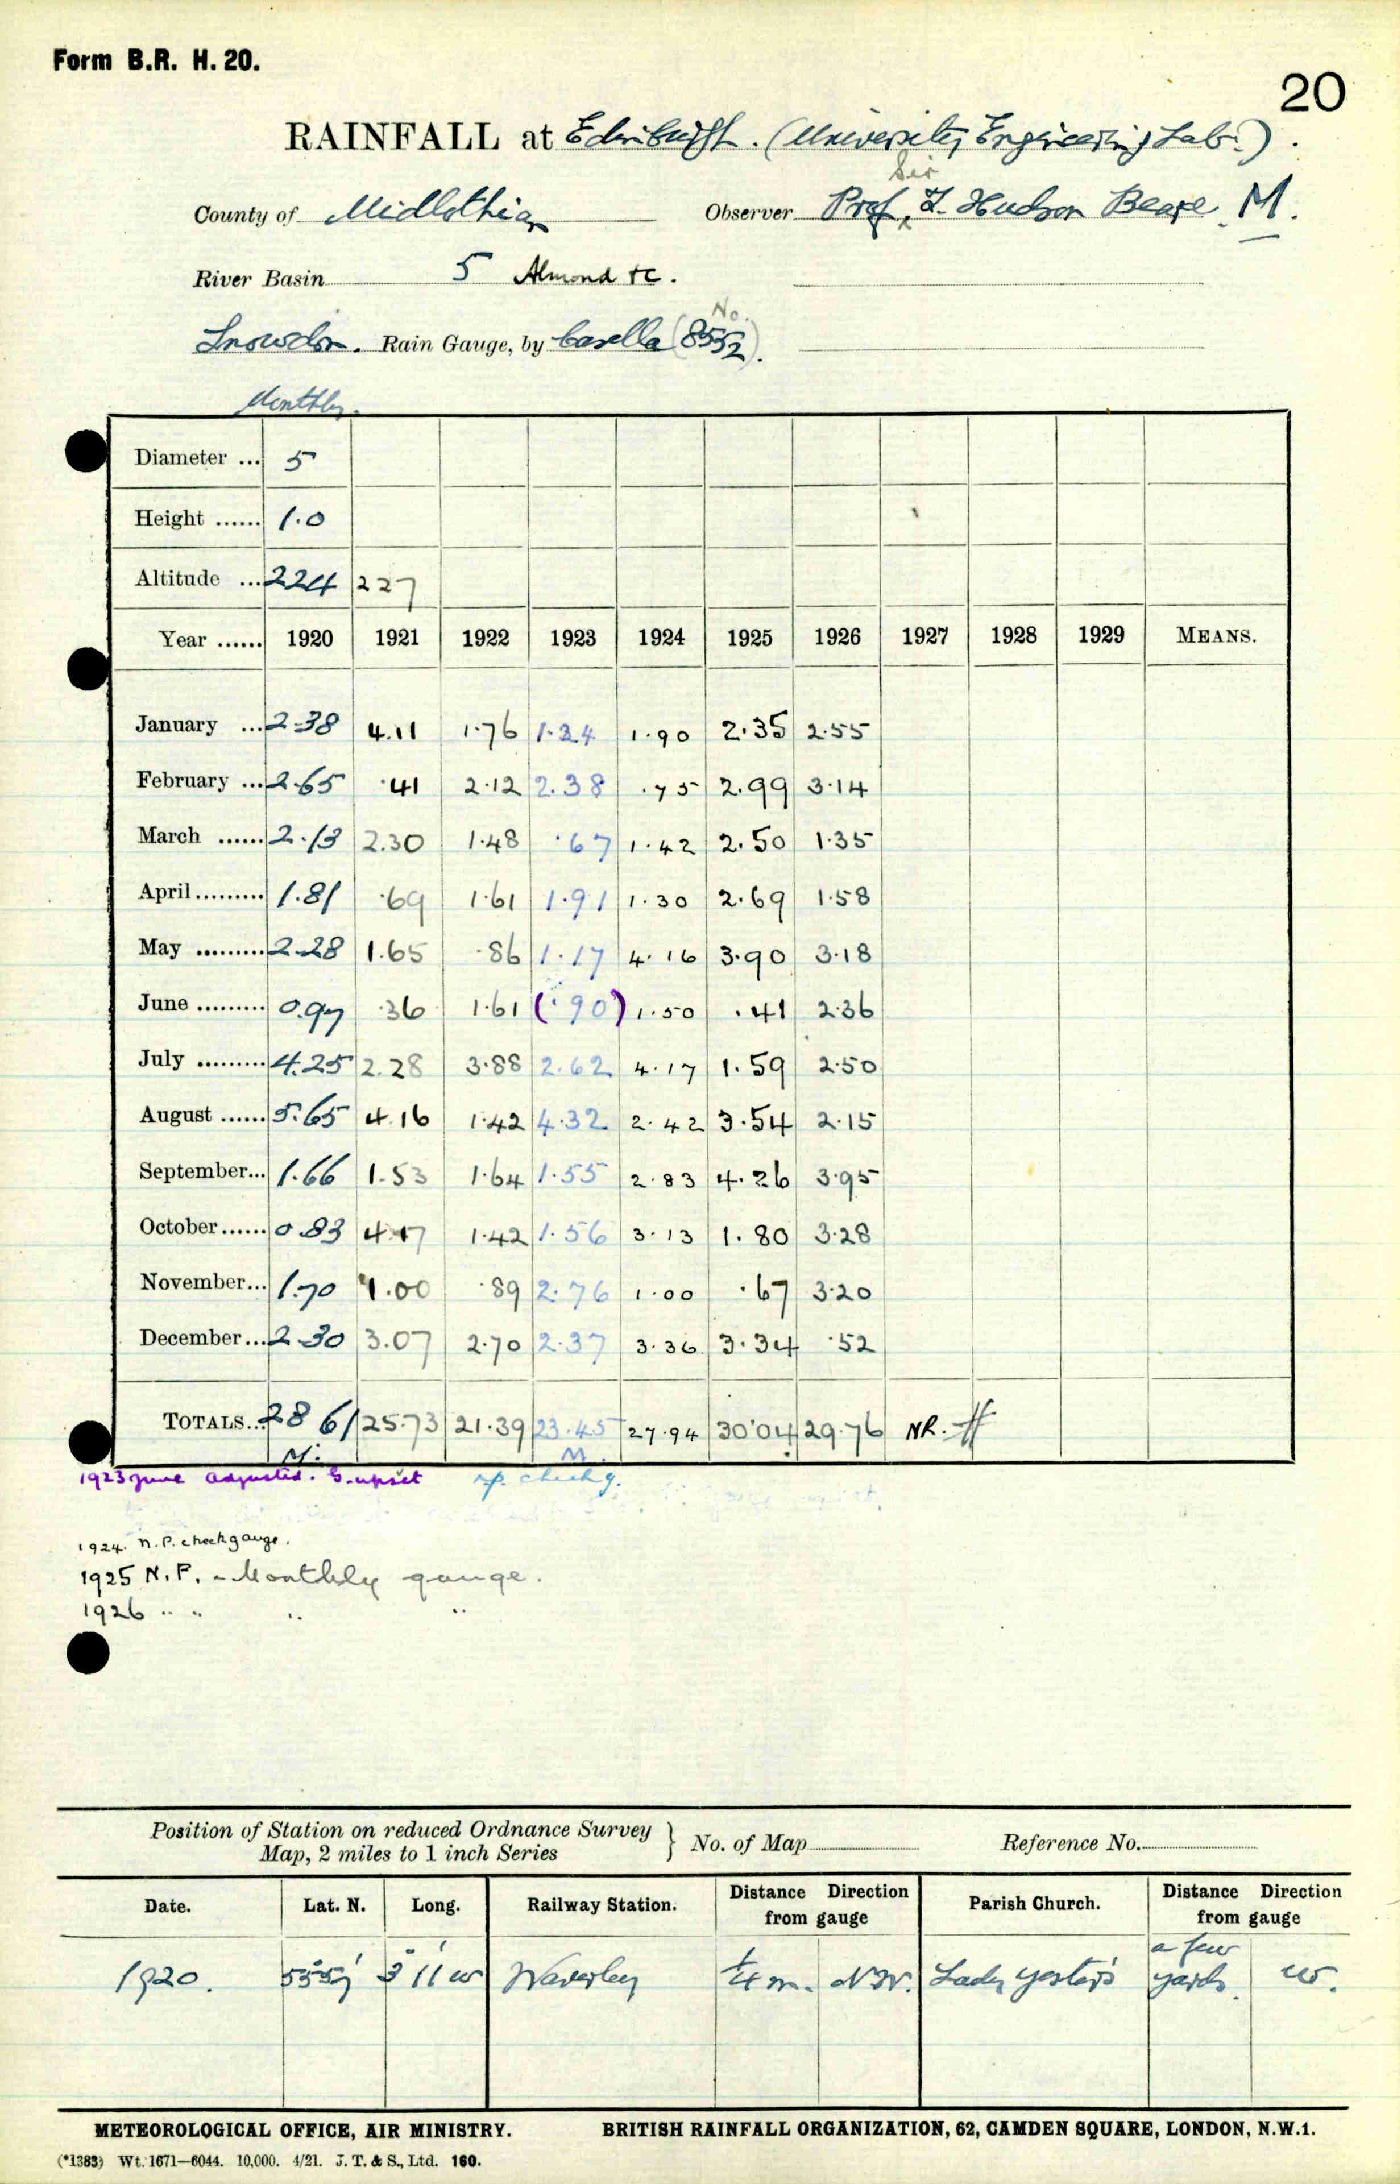 Form B.R. H. 20.
20
RAINFALL at Edinburgh. (University Engineering Lab.).
Sir
County of Midlothian Observer Prof. T. Hudson Beare. M.
River Basin 5 Almond &c.
No.
Snowdon. Rain Gauge, by Casella (8552).
Monthly.
Diameter ... 5
Height ...... 1.0
Altitude ... 224 227
Year ...... 1920 1921 1922 1923 1924 1925 1926 1927 1928 1929 MEANS.
January ... 2.38 4.11 1.76 1.24 1.90 2.35 2.55
February ... 2.65 .41 2.12 2.38 .75 2.99 3.14
March ...... 2.13 2.30 1.48 .67 1.42 2.50 1.35
April ......... 1.81 .69 1.61 1.91 1.30 2.69 1.58
May ......... 2.28 1.65 .86 1.17 4.16 3.90 3.18
June ......... 0.97 .36 1.61 (.90) 1.50 .41 2.36
July ......... 4.25 2.28 3.88 2.62 4.17 1.59 2.50
August ...... 5.65 4.16 1.42 4.32 2.42 3.54 2.15
September... 1.66 1.53 1.64 1.55 2.83 4.26 3.95
October...... 0.83 4.17 1.42 1.56 3.13 1.80 3.28
November... 1.70 1.00 .89 2.76 1.00 .67 3.20
December... 2.30 3.07 2.70 2.37 3.36 3.34 .52
TOTALS... 28 61 25.73 21.39 23.45 27.94 30.04 29.76 NR.
M. M.
1923 June adjusted. G. upset n.p. check g.
1924. N.P. check gauge.
1925 N.P. - Monthly gauge.
1926 " " " "
Position of Station on reduced Ordnance Survey
Map, 2 miles to 1 inch Series } No. of Map Reference No.
Date. Lat. N. Long. Railway Station. Distance Direction from gauge Parish Church. Distance Direction from gauge
1920. 55°57' 3°11'W Waverley 1/4 m. NW. Lady Yester's a few yards. W.
METEOROLOGICAL OFFICE, AIR MINISTRY. BRITISH RAINFALL ORGANIZATION, 62, CAMDEN SQUARE, LONDON, N.W.1.
(*1383) Wt. 1671—6044. 10,000. 4/21. J. T. & S., Ltd. 160.